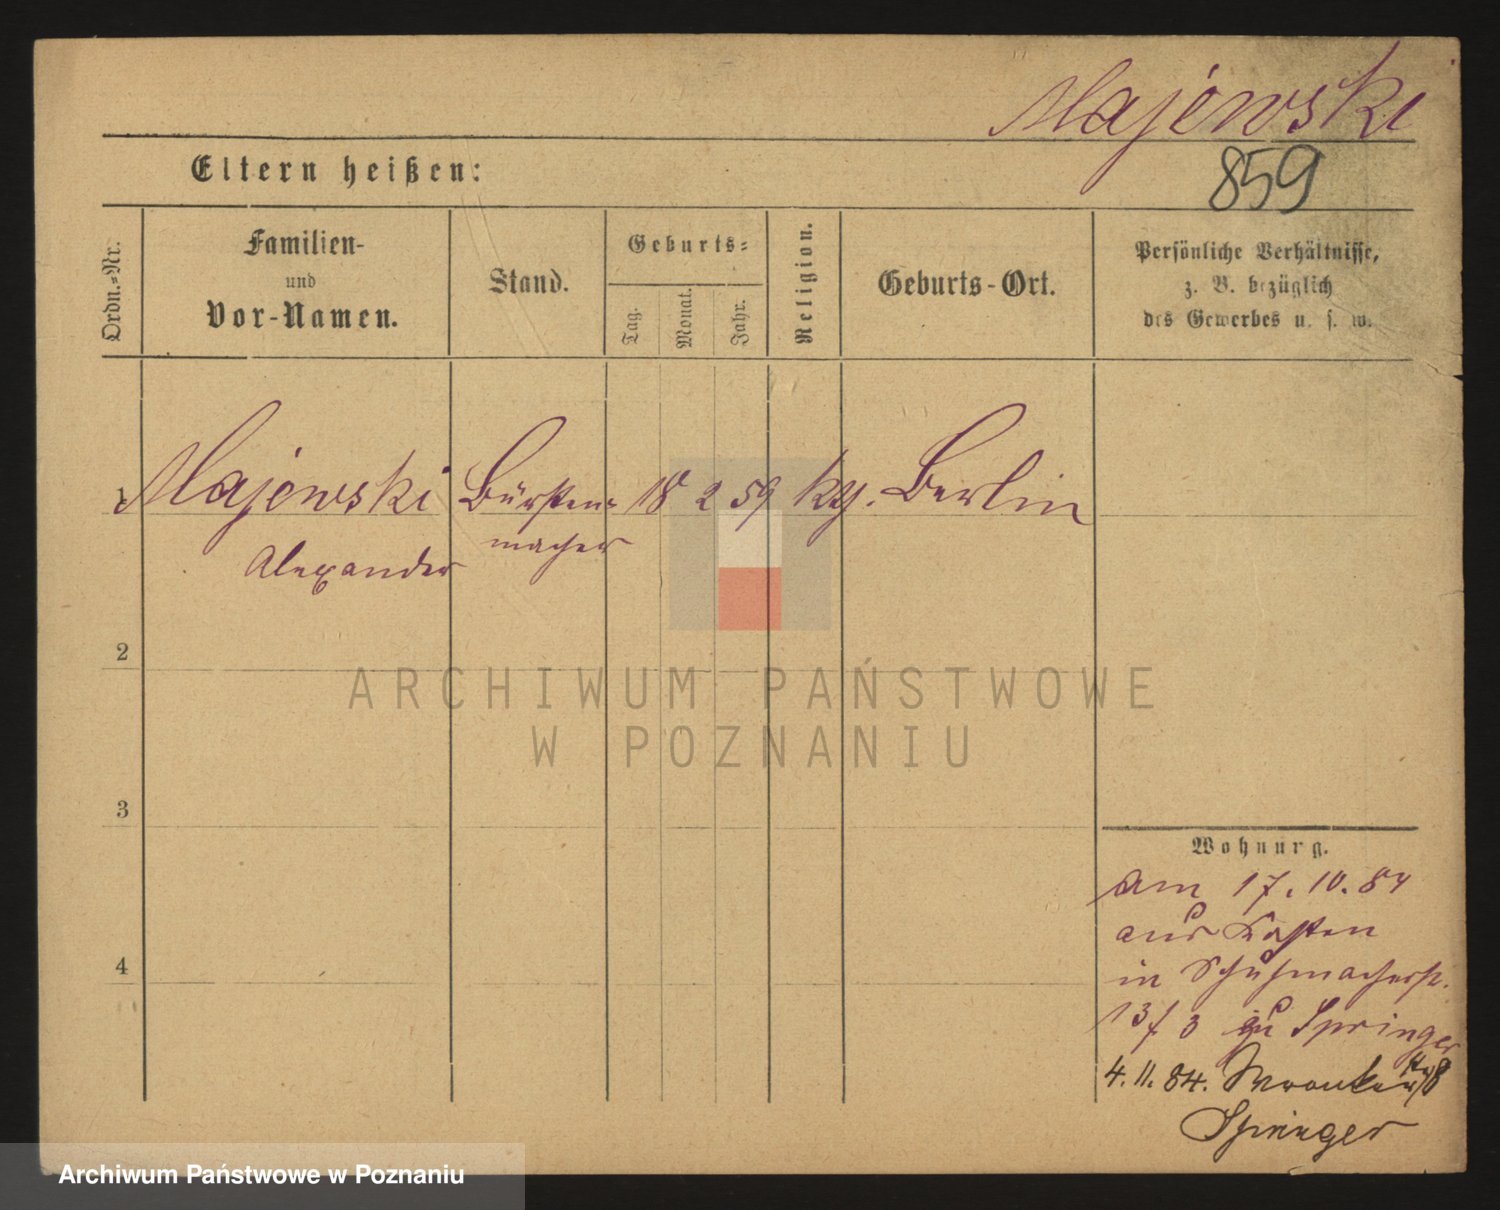 Majewski
859
Eltern heißen:
Ordn.-Nr.
Familien-
und
Vor-Namen.
Stand.
Geburts-
Tag.
Monat.
Jahr.
Religion.
Geburts-Ort.
Persönliche Verhältnisse,
z. B. bezüglich
des Gewerbes u. s. w.
1 Majewski Bürsten= 18 2 59 ky. Berlin
Alexander macher
2
3
4
Wohnung.
am 17. 10. 84
aus Kosten
in Schuhmacherstr.
13/3 zu Springer
4. 11. 84. Wronkerstr 8
Springer
ARCHIWUM PAŃSTWOWE
W POZNANIU
Archiwum Państwowe w Poznaniu